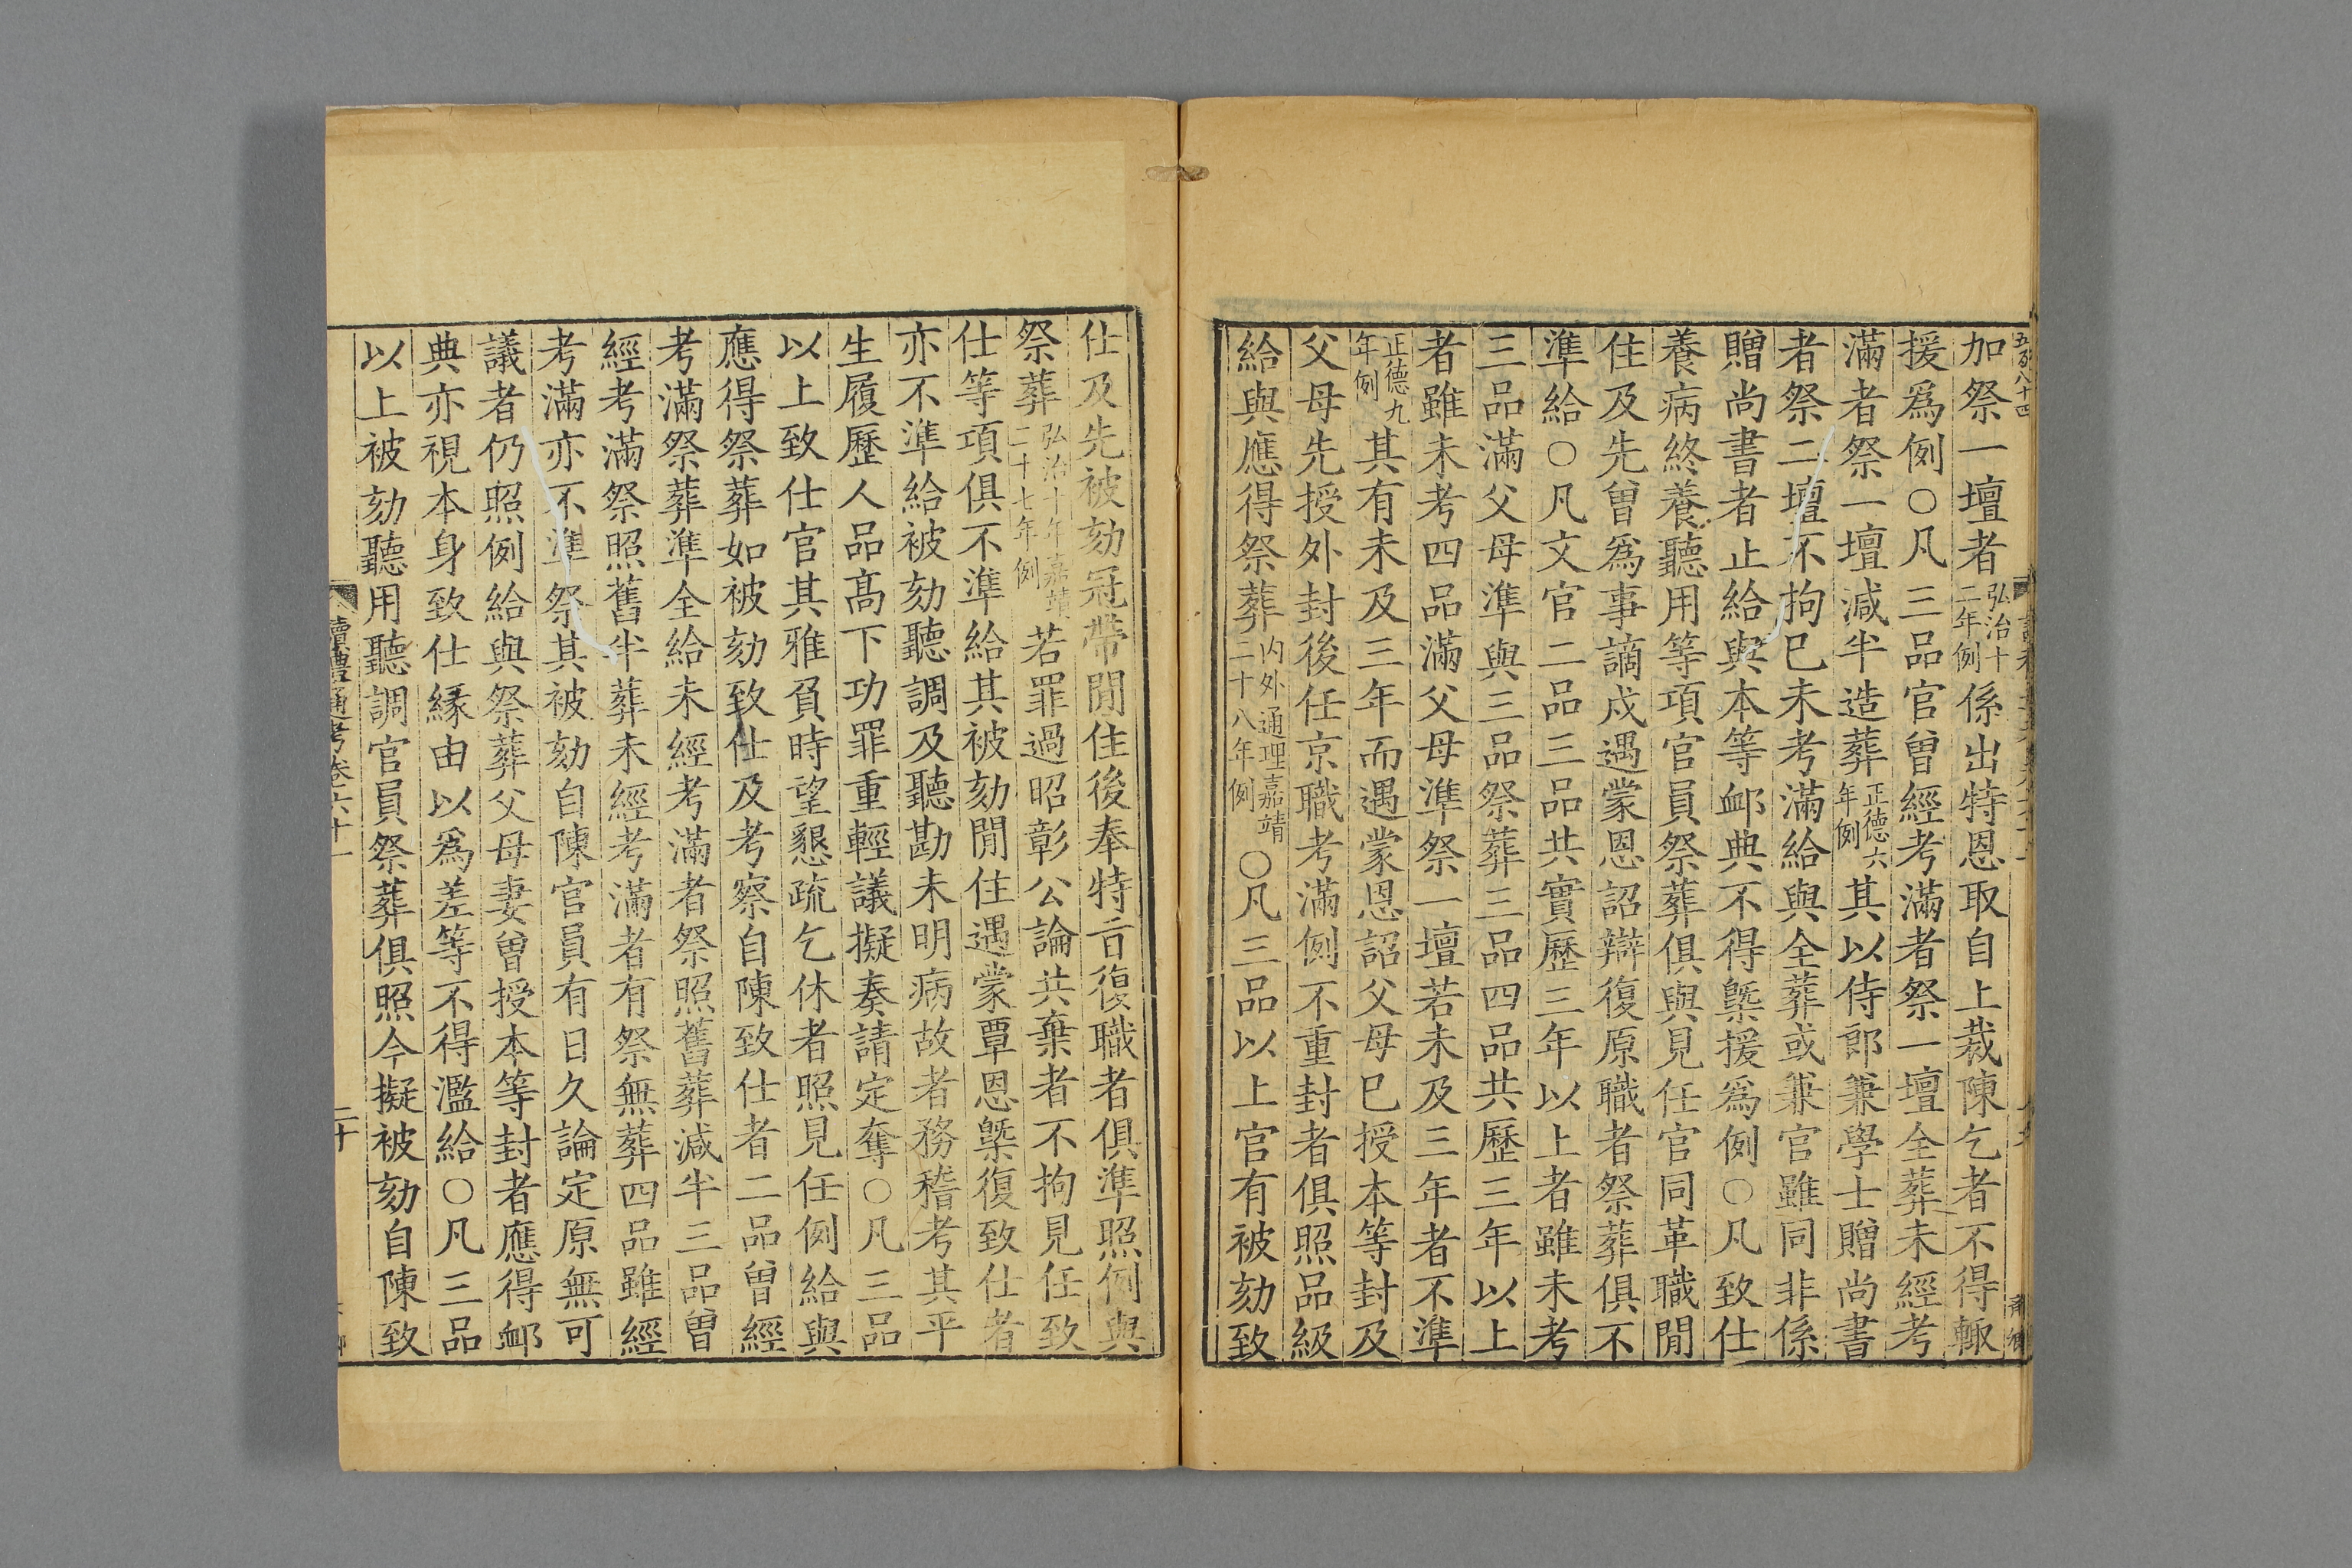 加祭一壇者弘治十二年例係出特恩取自上裁陳乞者不得輙
援爲例○凡三品官曾經考滿者祭一壇全葬未經考
滿者祭一壇減半造葬正德六年例其以侍郎兼學士贈尚書
者祭二壇不拘已未考滿給與全葬或兼官雖同非係
贈尚書者止給與本等衈典不得槩援爲例○凡致仕
養病終養聽用等項官員祭葬俱與見任官同革職閒
住及先曾爲事謫戍遇蒙恩詔辯復原職者祭葬俱不
準給○凡文官二品三品共實歷三年以上者雖未考
三品滿父母準與三品祭葬三品四品共歷三年以上
者雖未考四品滿父母準祭一壇若未及三年者不準
正德九年例其有未及三年而遇蒙恩詔父母已授本等封及
父母先授外封後任京職考滿例不重封者俱照品級
給與應得祭葬内外通理嘉靖二十八年例○凡三品以上官有被劾致
仕及先被劾冠帶閒住後奉特㫖復職者俱準照例與
祭葬弘治十年嘉靖二十七年例若罪過昭彰公論共棄者不拘見任致
仕等項俱不準給其被劾閒住遇蒙覃恩槩復致仕者
亦不準給被劾聽調及聽勘未明病故者務稽考其平
生履歷人品髙下功罪重輕議擬奏請定奪○凡三品
以上致仕官其雅負時望懇疏乞休者照見任例給與
應得祭葬如被劾致仕及考察自陳致仕者二品曾經
考滿祭葬準全給未經考滿者祭照舊葬減半三品曾
經考滿祭照舊半葬未經考滿者有祭無葬四品雖經
考滿亦不準祭其被劾自陳官員有日久論定原無可
議者仍照例給與祭葬父母妻曾授本等封者應得衈
典亦視本身致仕緣由以爲差等不得濫給○凡三品
以上被劾聽用聽調官員祭葬俱照今擬被劾自陳致
讀禮通考卷六十一
二十